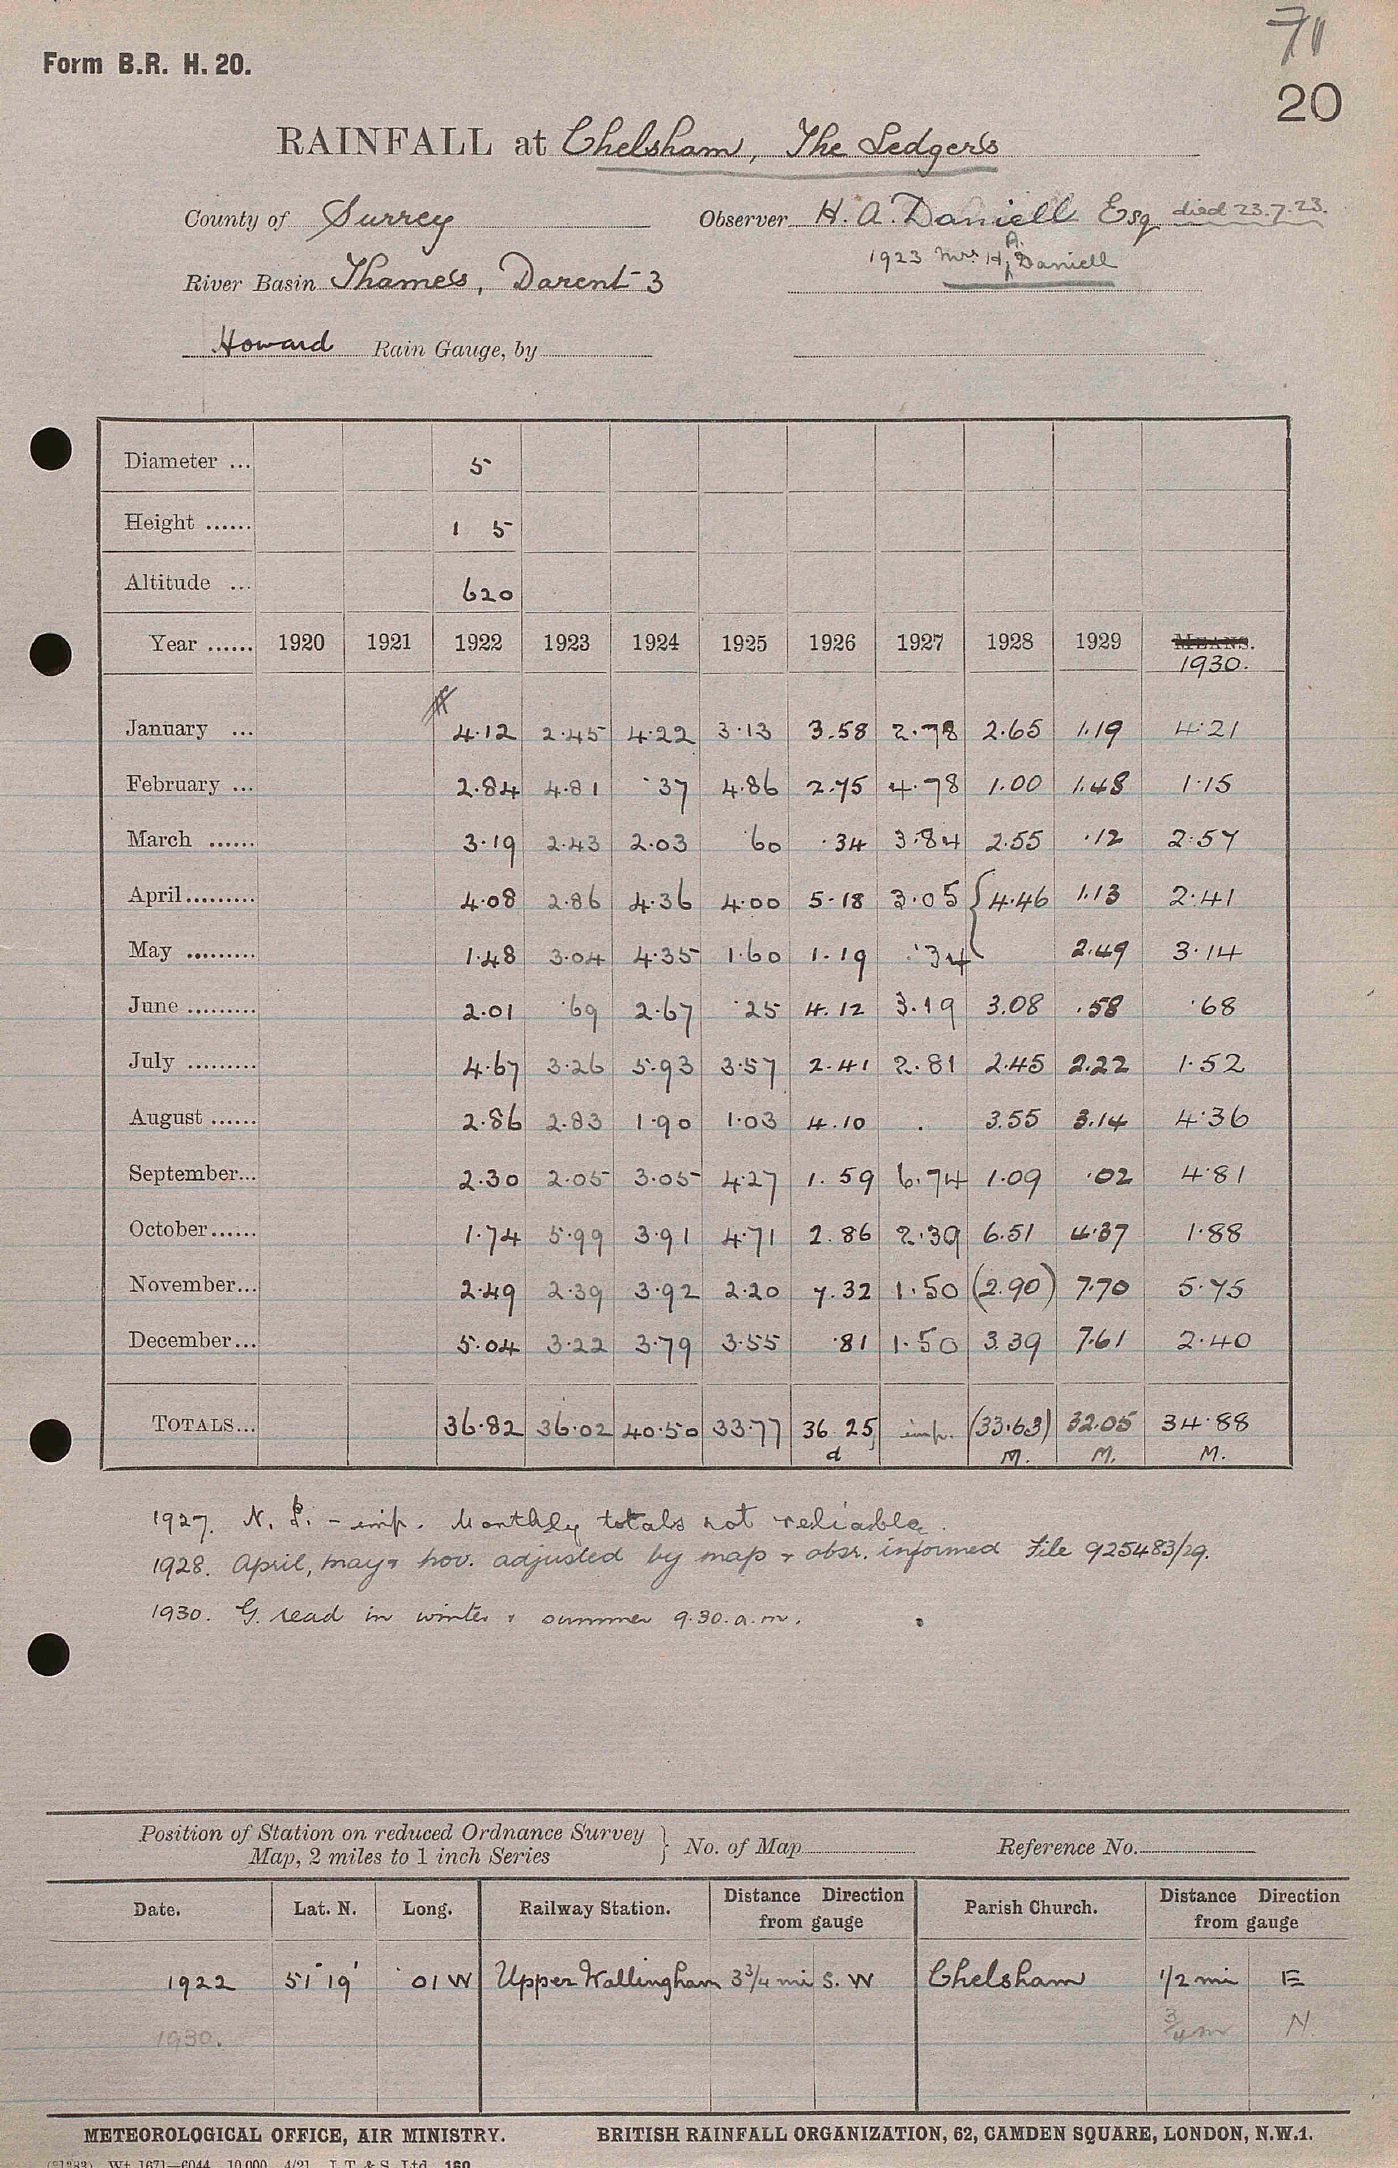 71
Form B.R. H. 20.
20
RAINFALL at Chelsham, The Ledgers
County of Surrey Observer H. A. Daniell Esq died 23.7.23.
1923 Mrs H. A. Daniell
River Basin Thames, Darent-3
Howard Rain Gauge, by
Diameter ... 5
Height ...... 1 5
Altitude ... 620
Year ...... 1920 1921 1922 1923 1924 1925 1926 1927 1928 1929 MEANS. 1930.
January ... 4.12 2.45 4.22 3.13 3.58 2.78 2.65 1.19 4.21
February ... 2.84 4.81 .37 4.86 2.75 4.78 1.00 1.48 1.15
March ...... 3.19 2.43 2.03 .60 .34 3.84 2.55 .12 2.57
April......... 4.08 2.86 4.36 4.00 5.18 3.05 {4.46 1.13 2.41
May ......... 1.48 3.04 4.35 1.60 1.19 .34 2.49 3.14
June ......... 2.01 .69 2.67 .25 4.12 3.19 3.08 .58 .68
July ......... 4.67 3.26 5.93 3.57 2.41 2.81 2.45 2.22 1.52
August ...... 2.86 2.83 1.90 1.03 4.10 . 3.55 3.14 4.36
September... 2.30 2.05 3.05 4.27 1.59 6.74 1.09 .02 4.81
October...... 1.74 5.99 3.91 4.71 2.86 2.39 6.51 4.37 1.88
November... 2.49 2.39 3.92 2.20 7.32 1.50 (2.90) 7.70 5.75
December... 5.04 3.22 3.79 3.55 .81 1.50 3.39 7.61 2.40
TOTALS... 36.82 36.02 40.50 33.77 36.25 imp. (33.63) 32.05 34.88
d M. M. M.
1927. N. P. - imp. Monthly totals not reliable.
1928. April, may & nov. adjusted by map & obsr. informed File 925483/29.
1930. G. read in winter & summer 9.30.a.m.
Position of Station on reduced Ordnance Survey
Map, 2 miles to 1 inch Series } No. of Map Reference No.
Date. Lat. N. Long. Railway Station. Distance Direction from gauge Parish Church. Distance Direction from gauge
1922 51°19' °01 W Upper Wallingham 3 3/4 mi S. W Chelsham 1/2 mi E
1930. 3/4 m N.
METEOROLOGICAL OFFICE, AIR MINISTRY. BRITISH RAINFALL ORGANIZATION, 62, CAMDEN SQUARE, LONDON, N.W.1.